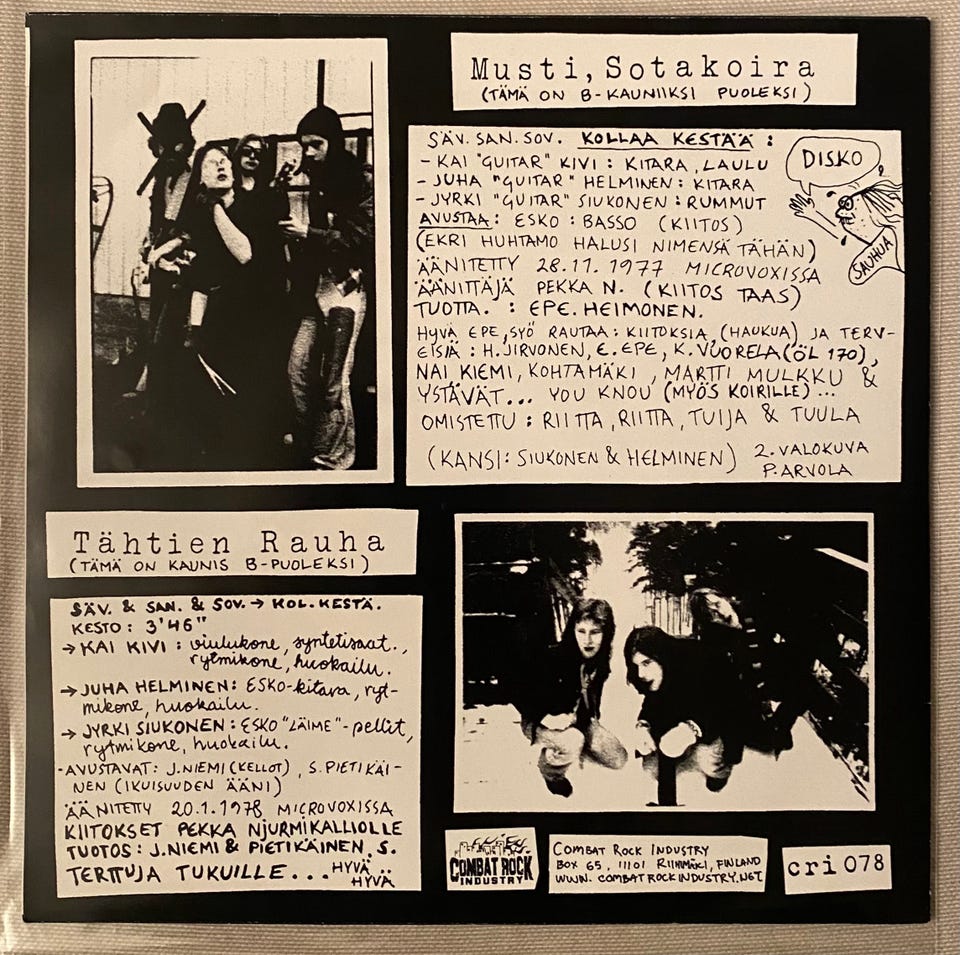 Musti, Sotakoira
(TÄMÄ ON B-KAUNIIKSI PUOLEKSI)
SÄV. SAN. SOV. KOLLAA KESTÄÄ:
- KAI "GUITAR" KIVI: KITARA, LAULU
- JUHA "GUITAR" HELMINEN: KITARA
- JYRKI "GUITAR" SIUKONEN: RUMMUT
AVUSTAA: ESKO: BASSO (KIITOS)
(EKRI HUHTAMO HALUSI NIMENSÄ TÄHÄN)
ÄÄNITETTY 28.11.1977 MICROVOXISSA
ÄÄNITTÄJÄ PEKKA N. (KIITOS TAAS)
TUOTTA. : EPE. HEIMONEN.
HYVÄ EPE, SYÖ RAUTAA: KIITOKSIA, (HAUKUA) JA TERV-
EISIÄ: H. JIRVONEN, E. EPE, K. VUORELA (ÖL 170),
NAI KIEMI, KOHTAMÄKI, MARTTI MULKKU &
YSTÄVÄT... YOU KNOU (MYÖS KOIRILLE)...
OMISTETTU: RIITTA, RIITTA, TUIJA & TUULA
(KANSI: SIUKONEN & HELMINEN)
2. VALOKUVA
P. ARVOLA
DISKO
SAUHUA
Tähtien Rauha
(TÄMÄ ON KAUNIS B-PUOLEKSI)
SÄV. & SAN. & SOV. → KOL. KESTÄ.
KESTO: 3'46"
→ KAI KIVI: viulukone, syntetisaat.,
rytmikone, huokailu.
→ JUHA HELMINEN: ESKO-kitara, ryt-
mikone, huokailu.
→ JYRKI SIUKONEN: ESKO "LÄIME"-pellit,
rytmikone, huokailu.
-AVUSTAVAT: J. NIEMI (KELLOT), S. PIETIKÄI-
NEN (IKUISUUDEN ÄÄNI)
ÄÄNITETTY 20.1.1978 MICROVOXISSA
KIITOKSET PEKKA NJURMIKALLIOLLE
TUOTOS: J. NIEMI & PIETIKÄINEN, S.
TERTTUJA TUKUILLE... HYVÄ
HYVÄ
COMBAT ROCK
INDUSTRY
COMBAT ROCK INDUSTRY
BOX 65, 11101 RIIHIMÄKI, FINLAND
WWW.COMBATROCKINDUSTRY.NET
cri078